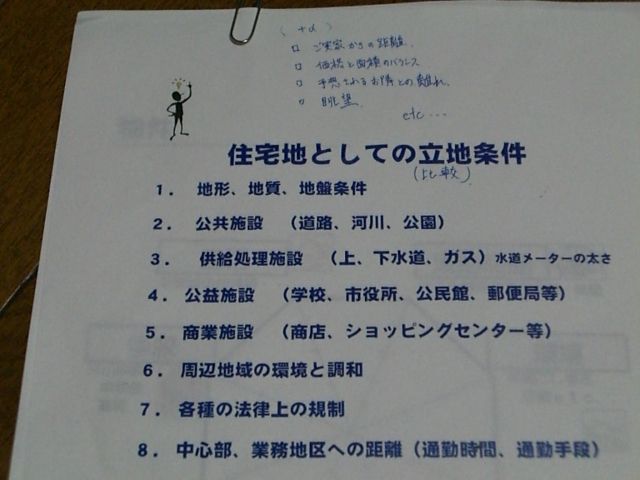 (+α)
□ ご実家からの距離
□ 価格と面積のバランス
□ 予想されるお隣との離れ
□ 眺望
etc…
住宅地としての立地条件
(比較)
1. 地形、地質、地盤条件
2. 公共施設 (道路、河川、公園)
3. 供給処理施設 (上、下水道、ガス) 水道メーターの太さ
4. 公益施設 (学校、市役所、公民館、郵便局等)
5. 商業施設 (商店、ショッピングセンター等)
6. 周辺地域の環境と調和
7. 各種の法律上の規制
8. 中心部、業務地区への距離 (通勤時間、通勤手段)